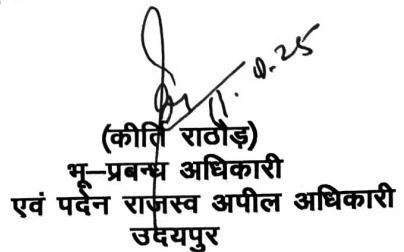 (कीर्ति राठौड़)
भू–प्रबन्ध अधिकारी
एवं पदेन राजस्व अपील अधिकारी
उदयपुर